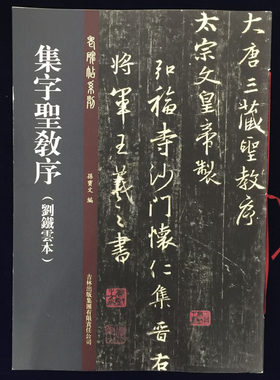 老碑帖系列
集字聖教序
（劉鐵雲本）
孫寶文 編
吉林出版集團有限責任公司
大唐三藏聖教序
太宗文皇帝製
弘福寺沙門懷仁集晉右
將軍王羲之書